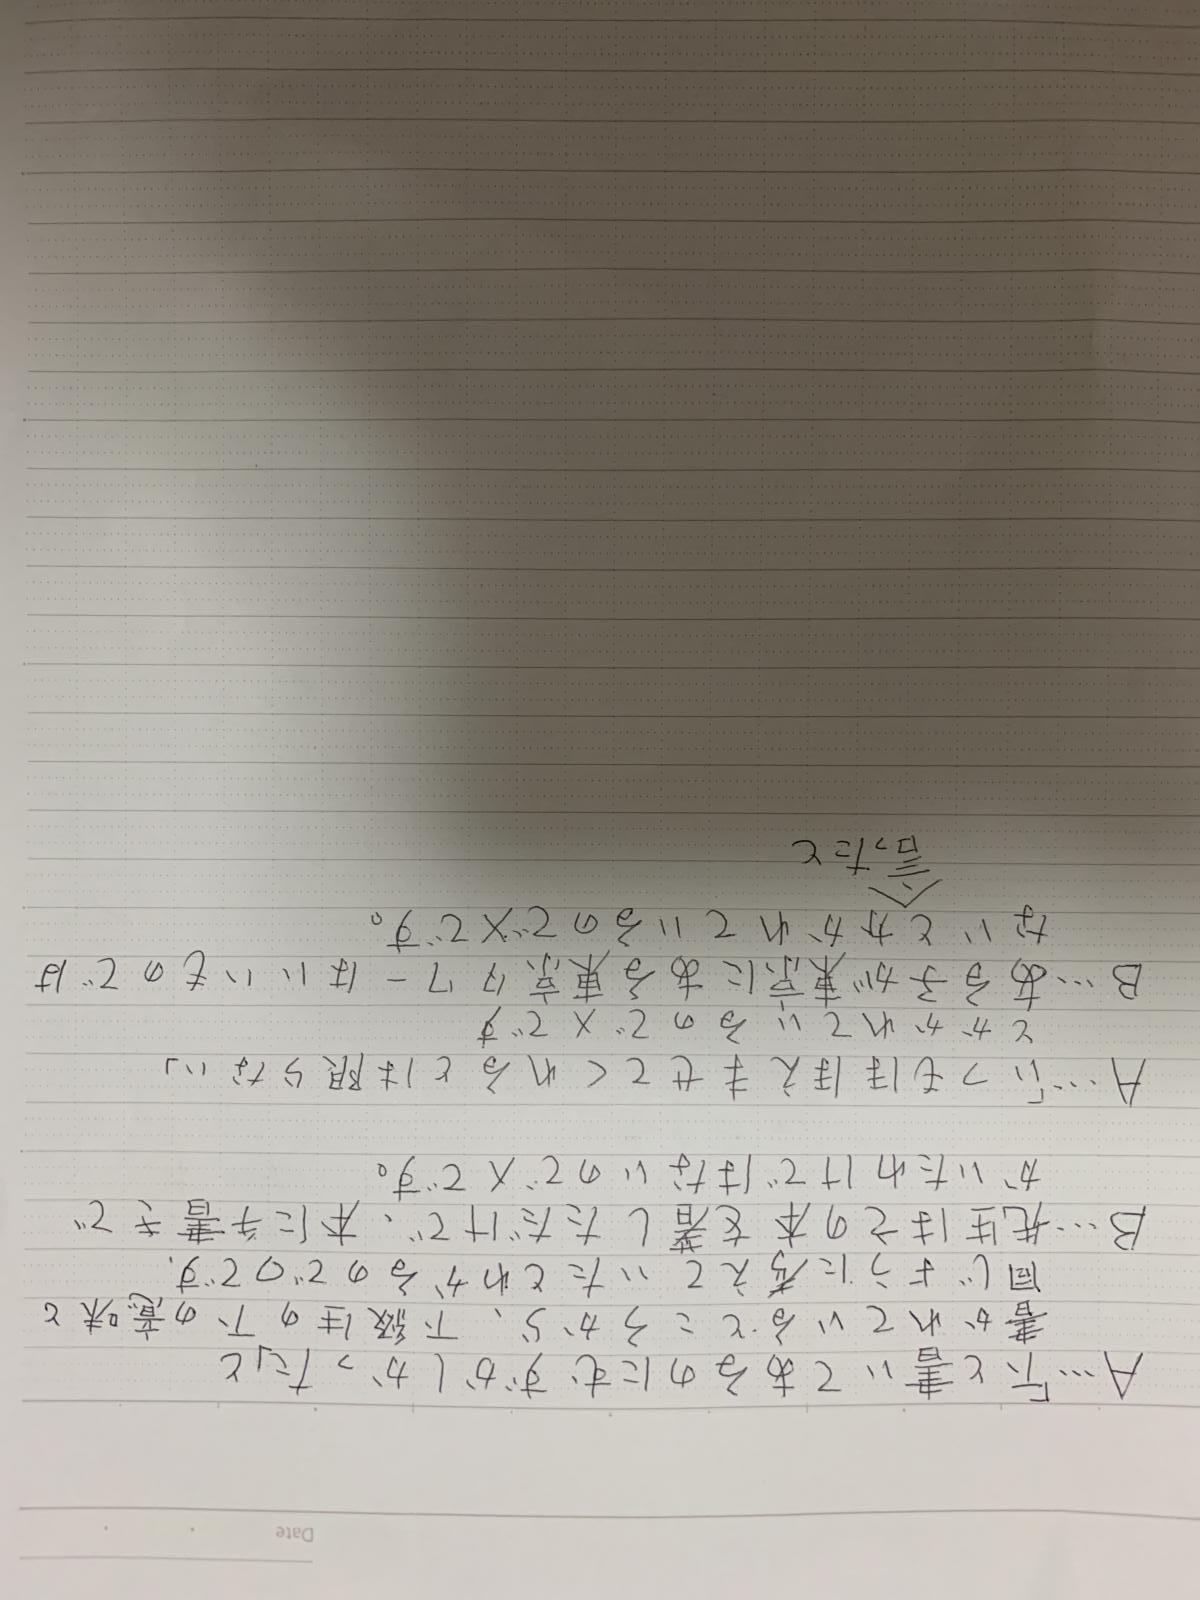 Date
A…「下と書いてあるのにむずかしかった」と
書かれていることろから、下級生の下の意味と
同じように考えていたとわかるので○です。
B…先生はこの本を著しただけで、本に手書きで
かいたわけではないので×です。
A…「いつもほほえませてくれるとは限らない」
とかかれているので×です
B…ある子が東京にある東京タワーはいいものでは
ないとかかれているので×です。
言ったと